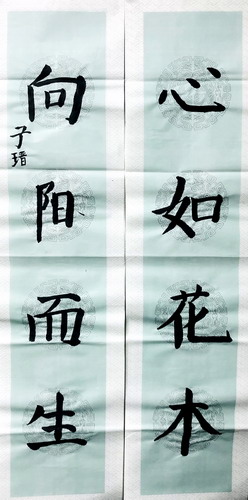 心如花木
向阳而生
子瑨